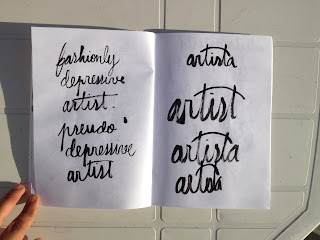 fashionly
depressive
artist.
pseudo
depressive
artist
artista
artist
artista